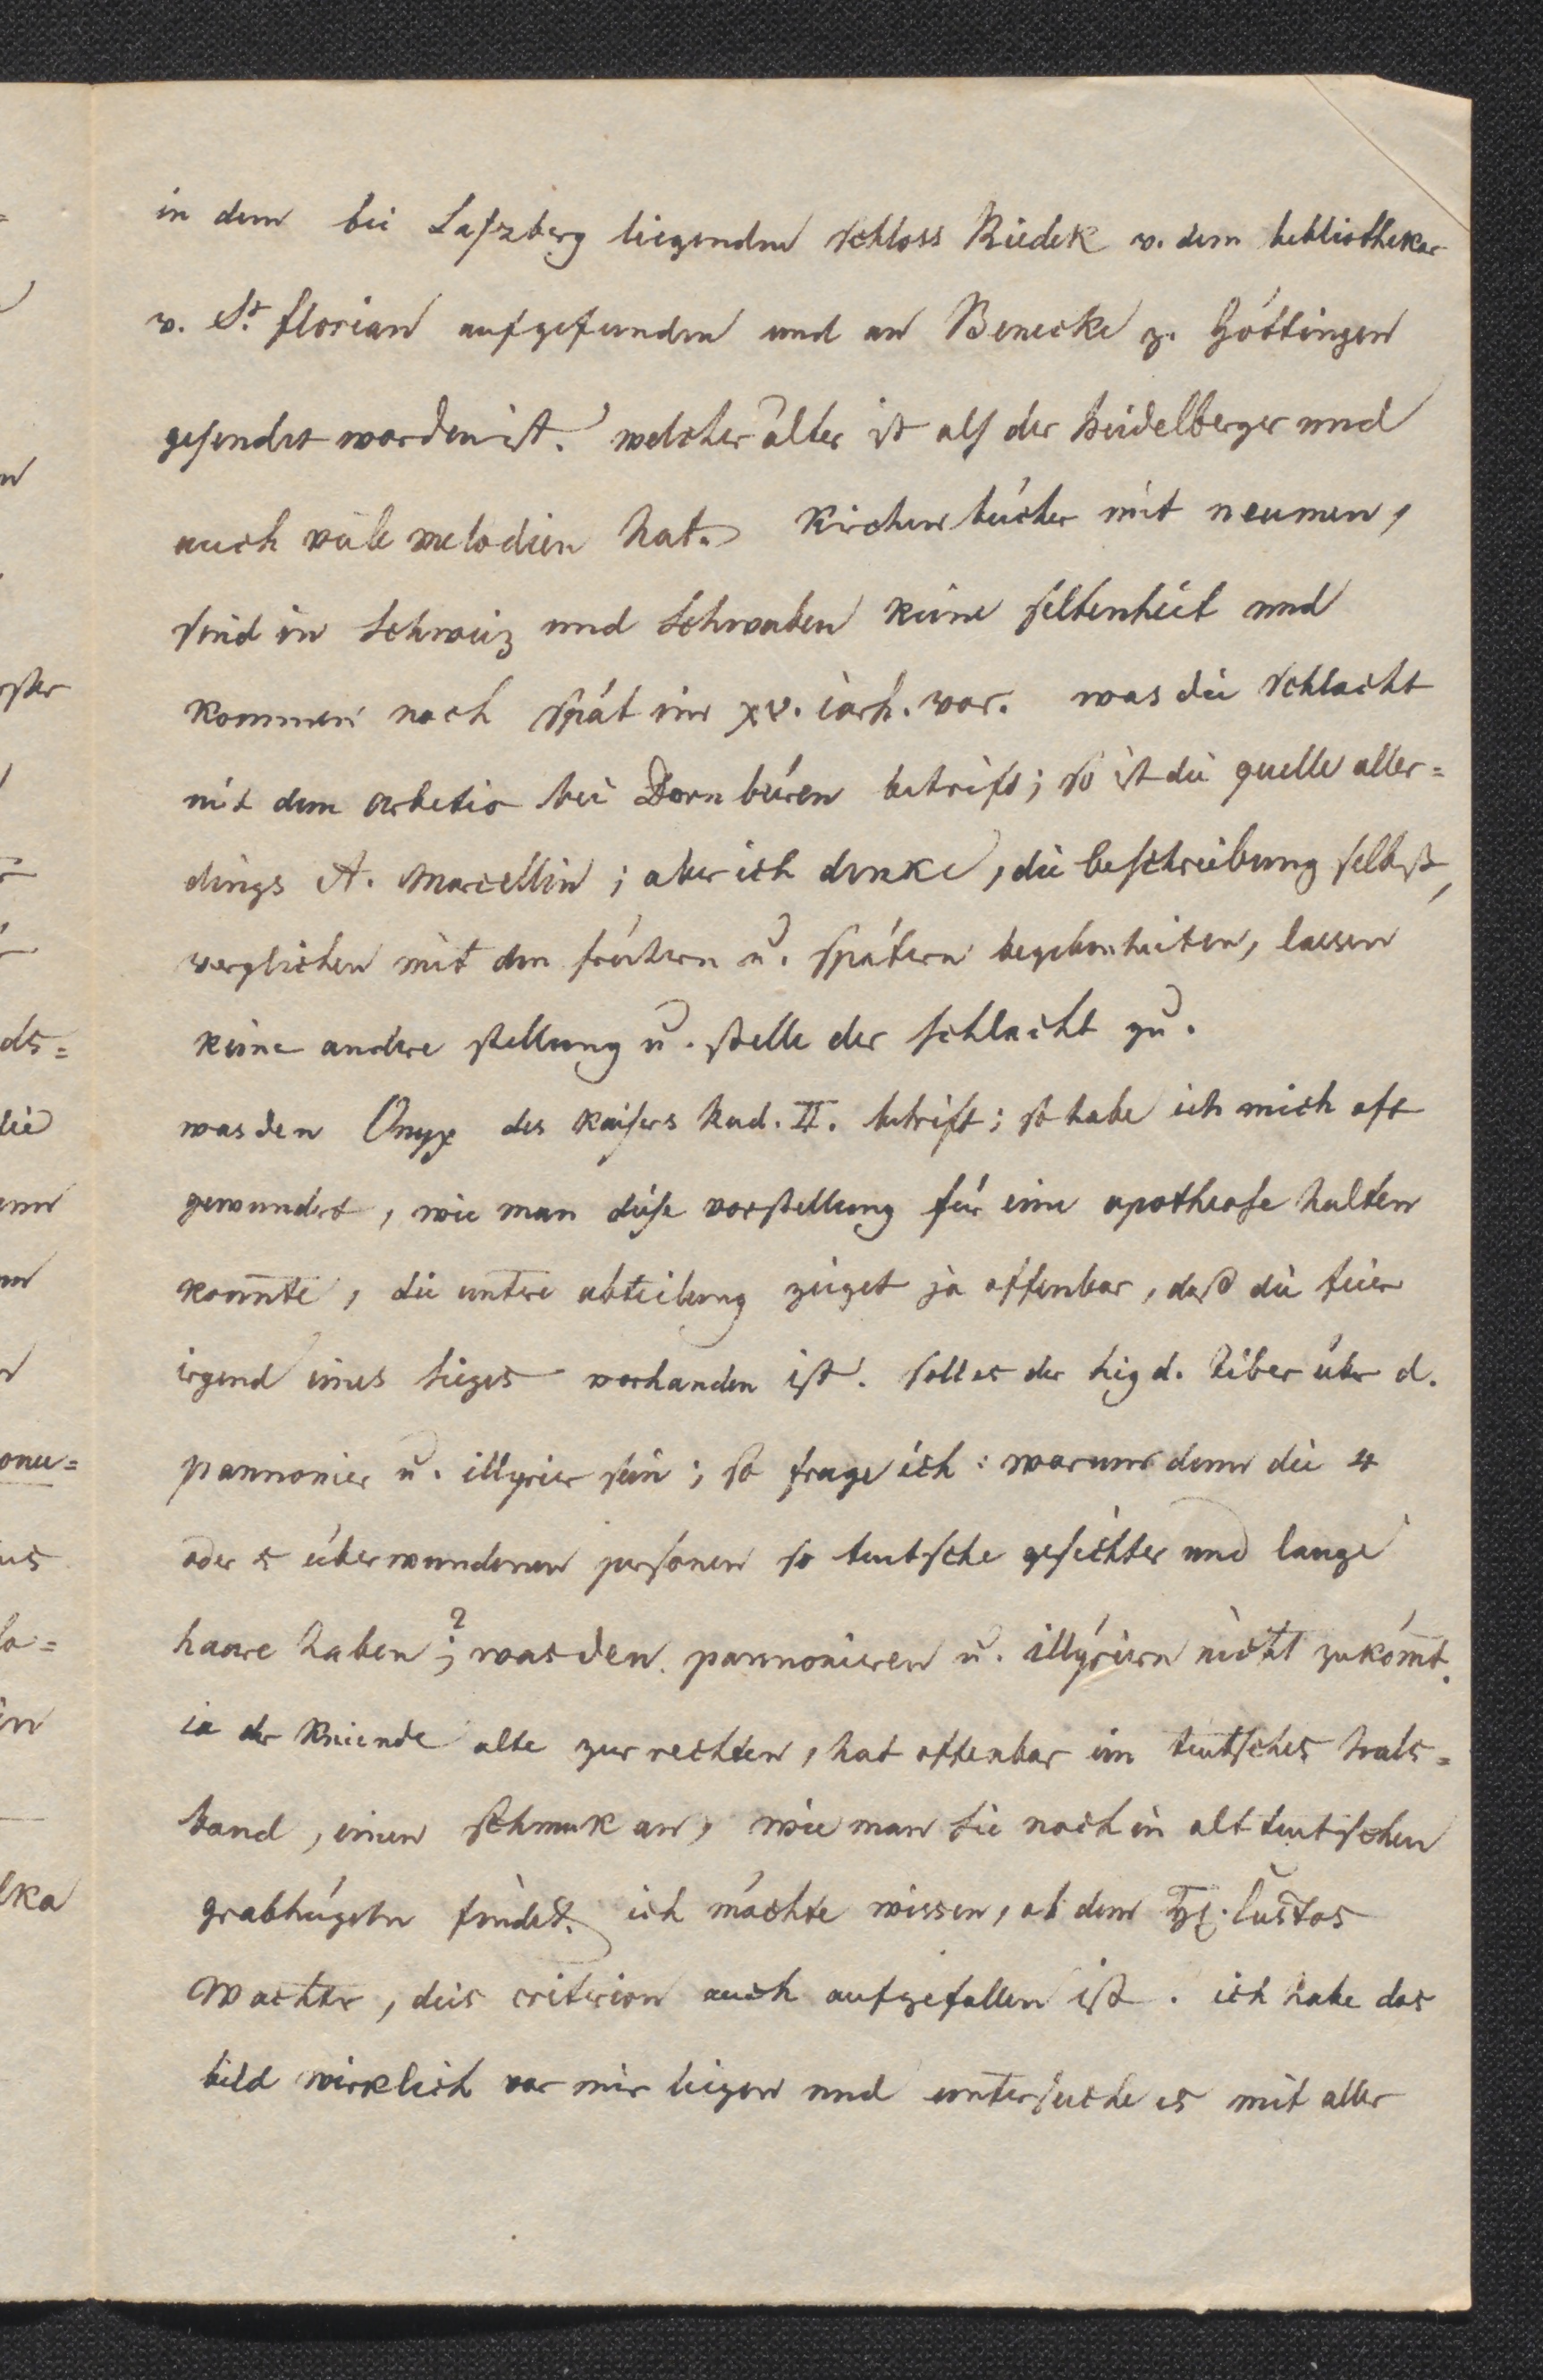 in dem bei Laſzberg liegenden schloss Riedek v. dem bibliothekar
v. St. florian aufgefunden und an Benecke z. Göttingen
geſendet worden ist. welcher älter ist alſ der heidelberger und
auch viele melodien hat. Kirchenbücher mit neumen,
sind in Schweiz und Schwaben keine seltenheit und
kommen noch spät im XV. iarh. vor. was die schlacht
mit dem arbetio bei Dornbüren betrift; so ist die quelle aller=
dings A. Marcellin; aber ich denke, die beschreibung selbst,
verglichen mit den frühern u. spätern begebenheiten, lassen
keine andere stellung u. stelle der schlacht zu.
was den Onyx des kaisers Rud. II. betrift; so habe ich mich oft
gewundert, wie man diese vorstellung für eine apotheose halten
konnte, die untere abteilung zeiget ja offenbar, daß die feier
irgend eines sieges vorhanden ist. soll es der sieg d. Tiber über d.
pannonier u. illyrier sein; so frage ich: warum denn die 4
oder 5 überwundenen personen so teutsche gesichter und lange
haare haben?; was den pannonieren u. illyriern nicht zukömt.
ia der kniende alte zur rechten, hat offenbar ein teutsches hals=
band, einen schmuk an, wie man sie noch in alt teutschen
grabhügeln findet. ich möchte wissen, ob dem Hr. Custos
Wachter, dies criterion auch aufgefallen ist. ich habe das
bild wirklich vor mir liegen und untersuche es mit aller